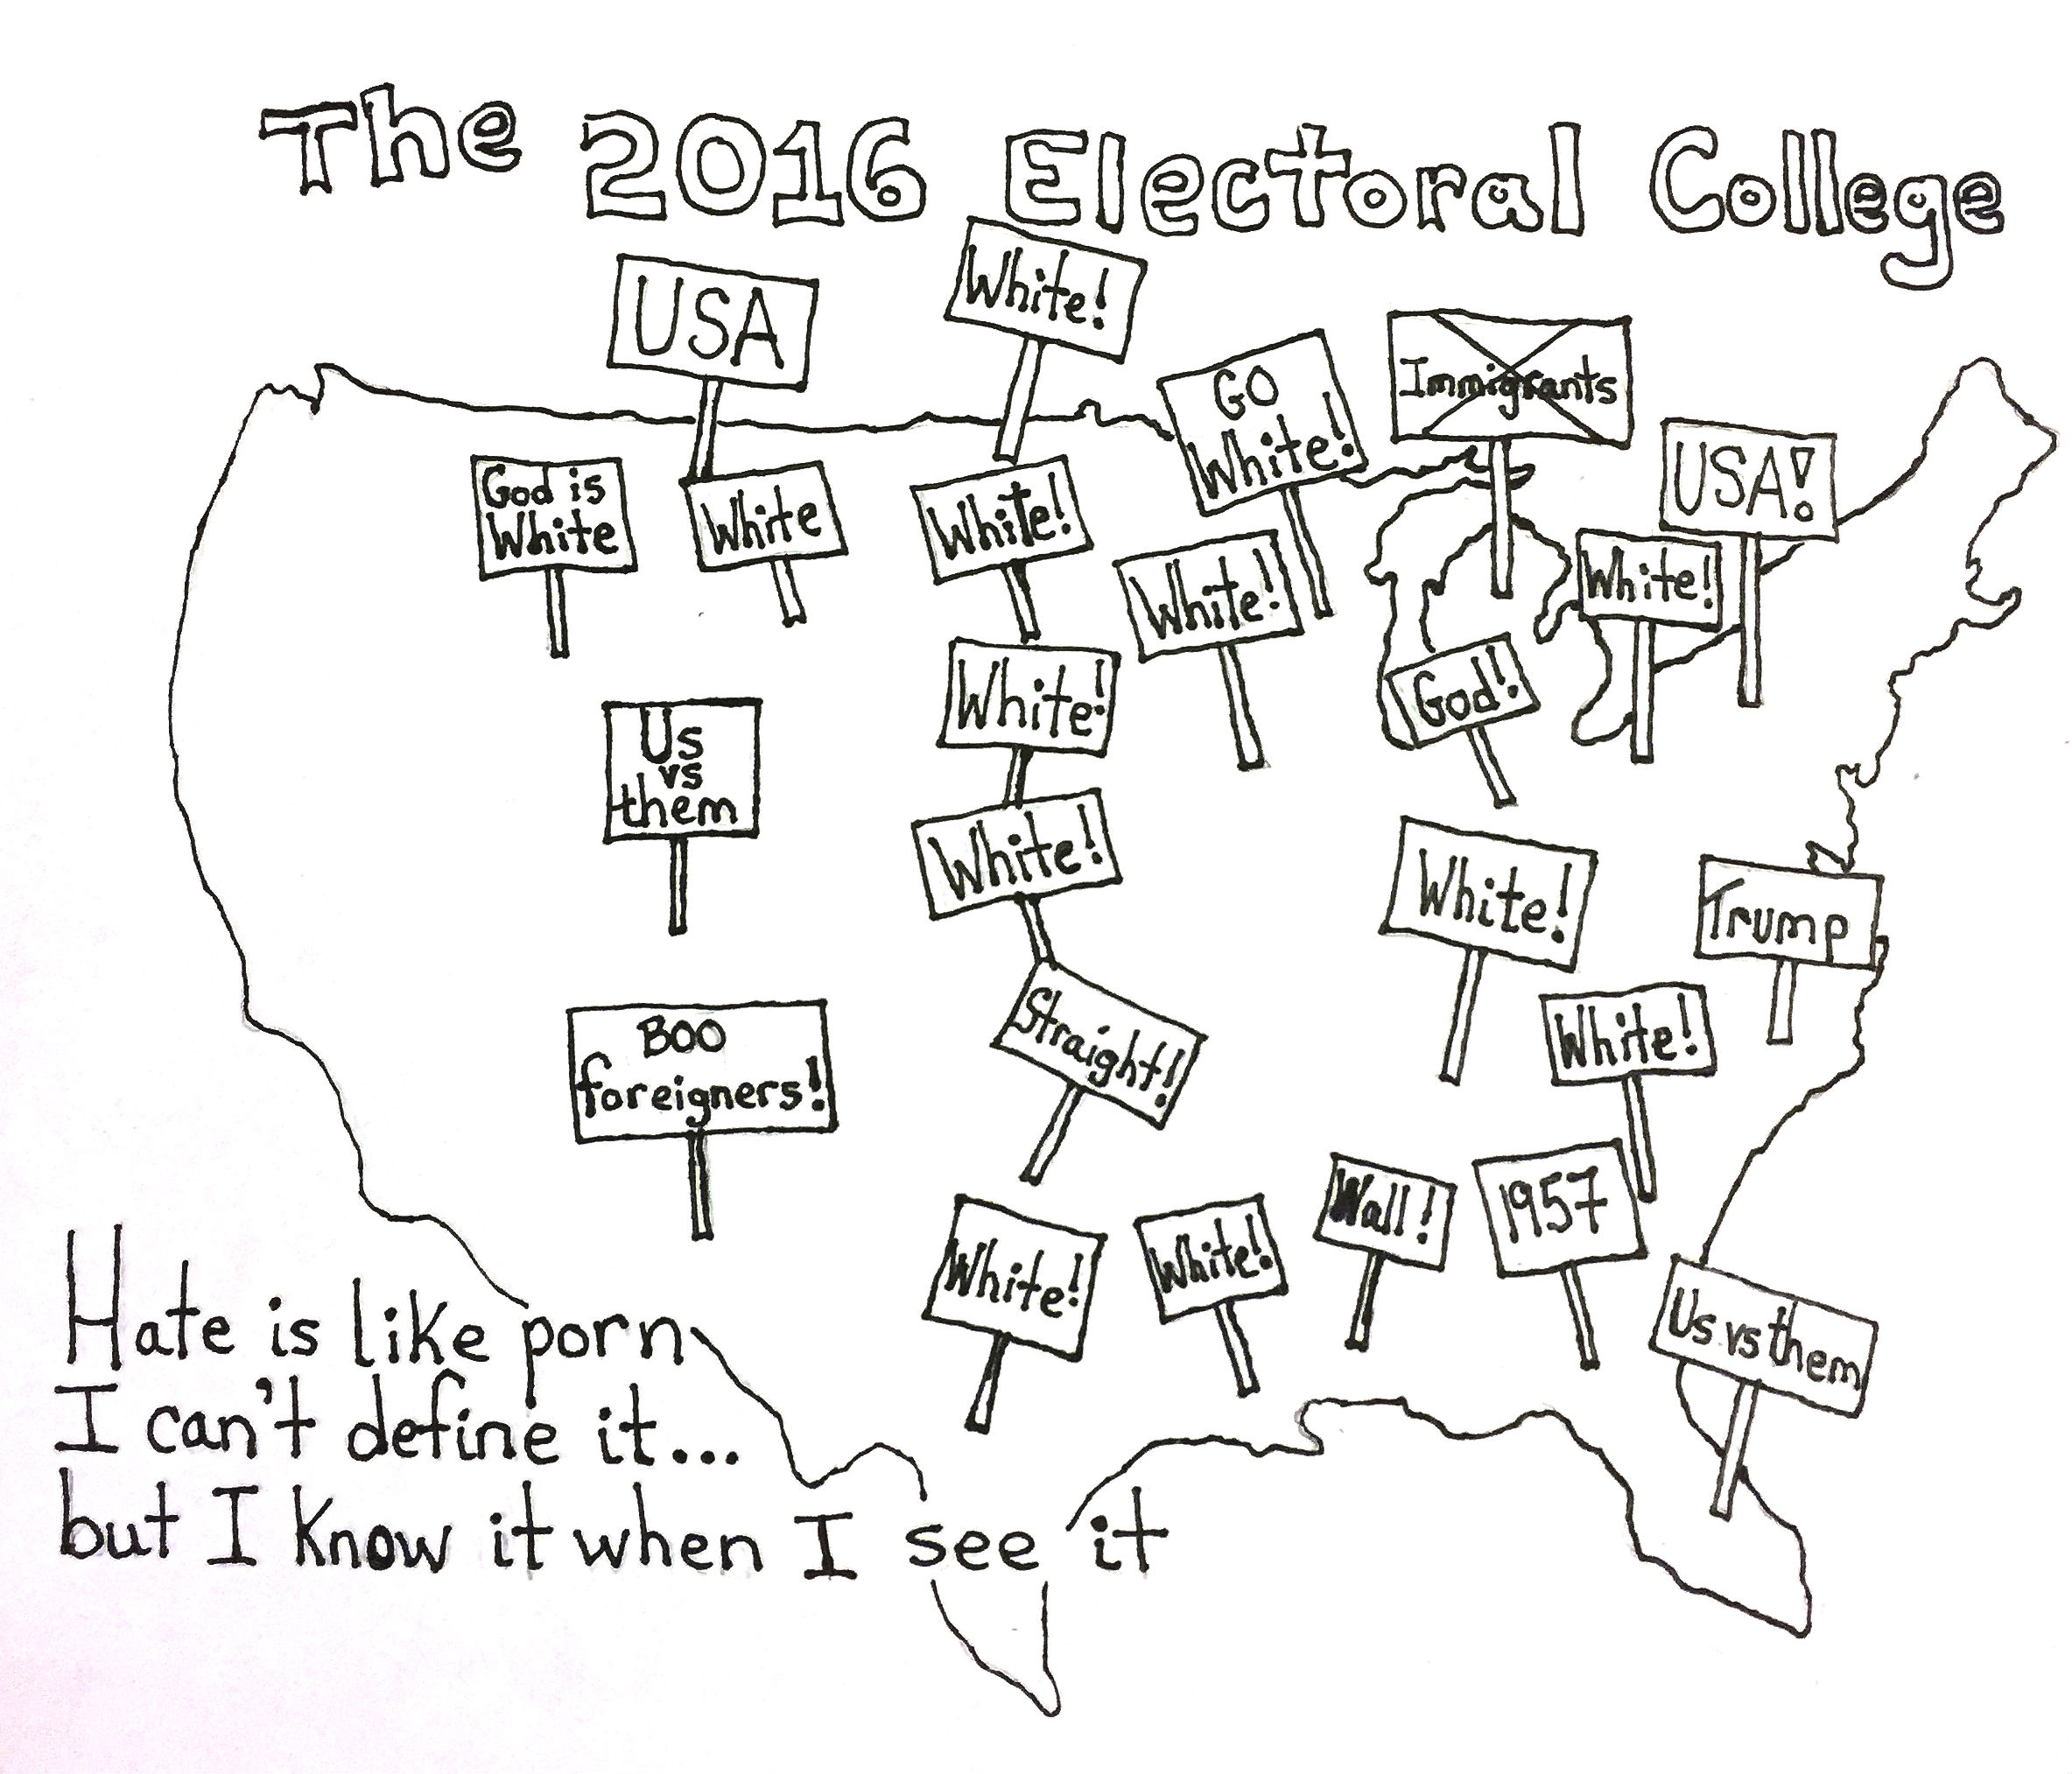 The 2016 Electoral College
USA
White!
GO
White!
Immigrants
USA!
God is
White
White
White!
White!
White!
Us
vs
them
White!
God!
White!
White!
Trump
Boo
foreigners!
Straight!
White!
White!
White!
Wall!
1957
Us vs them
Hate is like porn
I can't define it...
but I know it when I see it